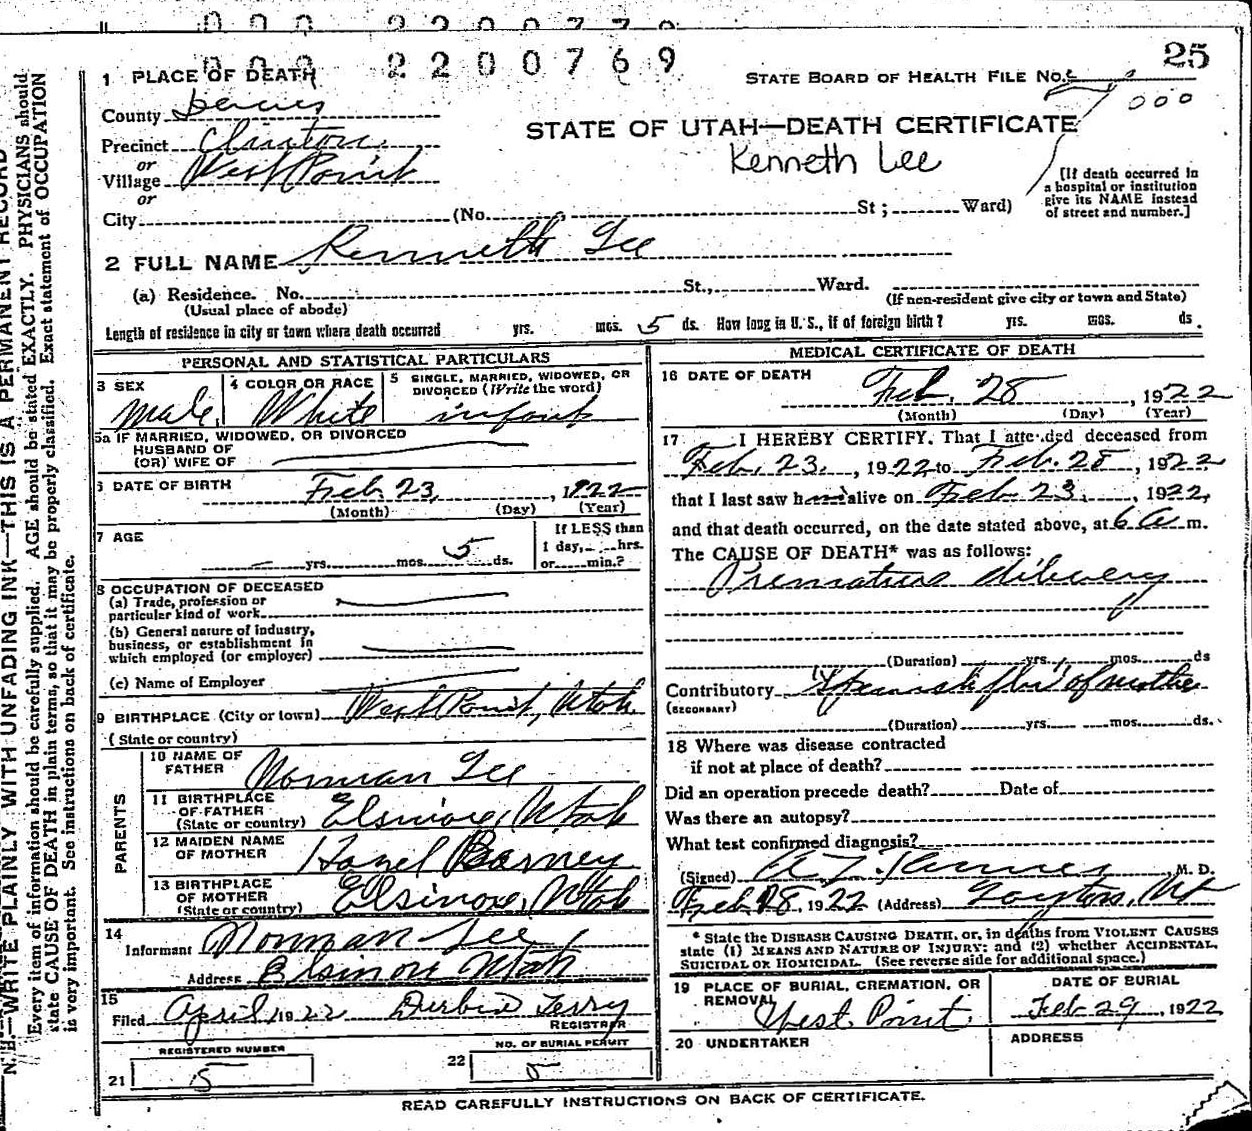 000 2200770
000 2200769
25
1 PLACE OF DEATH
STATE BOARD OF HEALTH FILE No.
000
County Davis
STATE OF UTAH—DEATH CERTIFICATE
Precinct Clinton
Kenneth Lee
or
Village West Point
or
[If death occurred in
a hospital or institution
give its NAME instead
of street and number.]
City (No. St; Ward)
2 FULL NAME Kenneth Lee
(a) Residence. No. St., Ward.
(Usual place of abode)
(If non-resident give city or town and State)
Length of residence in city or town where death occurred yrs. mos. 5 ds. How long in U. S., if of foreign birth? yrs. mos. ds.
PERSONAL AND STATISTICAL PARTICULARS
3 SEX
Male
4 COLOR OR RACE
White
5 SINGLE, MARRIED, WIDOWED, OR
DIVORCED (Write the word)
infant
5a IF MARRIED, WIDOWED, OR DIVORCED
HUSBAND OF
(OR) WIFE OF
6 DATE OF BIRTH Feb 23, 1922
(Month) (Day) (Year)
7 AGE
yrs. mos. 5 ds.
If LESS than
1 day, hrs.
or min.?
8 OCCUPATION OF DECEASED
(a) Trade, profession or
particular kind of work
(b) General nature of industry,
business, or establishment in
which employed (or employer)
(c) Name of Employer
9 BIRTHPLACE (City or town) West Point, Utah
(State or country)
PARENTS
10 NAME OF
FATHER Norman Lee
11 BIRTHPLACE
OF FATHER
(State or country) Elsinore, Utah
12 MAIDEN NAME
OF MOTHER Hazel Barney
13 BIRTHPLACE
OF MOTHER
(State or country) Elsinore, Utah
14
Informant Norman Lee
Address Elsinore Utah
15
Filed April 1922
REGISTRAR
21 REGISTERED NUMBER
5
22 NO. OF BURIAL PERMIT
5
MEDICAL CERTIFICATE OF DEATH
16 DATE OF DEATH
Feb. 28, 1922
(Month) (Day) (Year)
17 I HEREBY CERTIFY. That I attended deceased from
Feb. 23, 1922 to Feb. 28, 1922
that I last saw him alive on Feb 23, 1922,
and that death occurred, on the date stated above, at 6 a m.
The CAUSE OF DEATH* was as follows:
Premature delivery
(Duration) yrs. mos. ds
Contributory Spanish flu of mother
(SECONDARY)
(Duration) yrs. mos. ds.
18 Where was disease contracted
if not at place of death?
Did an operation precede death? Date of
Was there an autopsy?
What test confirmed diagnosis?
(Signed) M. D.
Feb 28, 1922 (Address) Layton, Ut
* State the DISEASE CAUSING DEATH, or, in deaths from VIOLENT CAUSES
state (1) MEANS AND NATURE OF INJURY: and (2) whether ACCIDENTAL,
SUICIDAL OR HOMICIDAL. (See reverse side for additional space.)
19 PLACE OF BURIAL, CREMATION, OR
REMOVAL
West Point
DATE OF BURIAL
Feb 29, 1922
20 UNDERTAKER
ADDRESS
READ CAREFULLY INSTRUCTIONS ON BACK OF CERTIFICATE.
N. B.—WRITE PLAINLY WITH UNFADING INK—THIS IS A PERMANENT RECORD
Every item of information should be carefully supplied. AGE should be stated EXACTLY. PHYSICIANS should
state CAUSE OF DEATH in plain terms, so that it may be properly classified. Exact statement of OCCUPATION
is very important. See instructions on back of certificate.